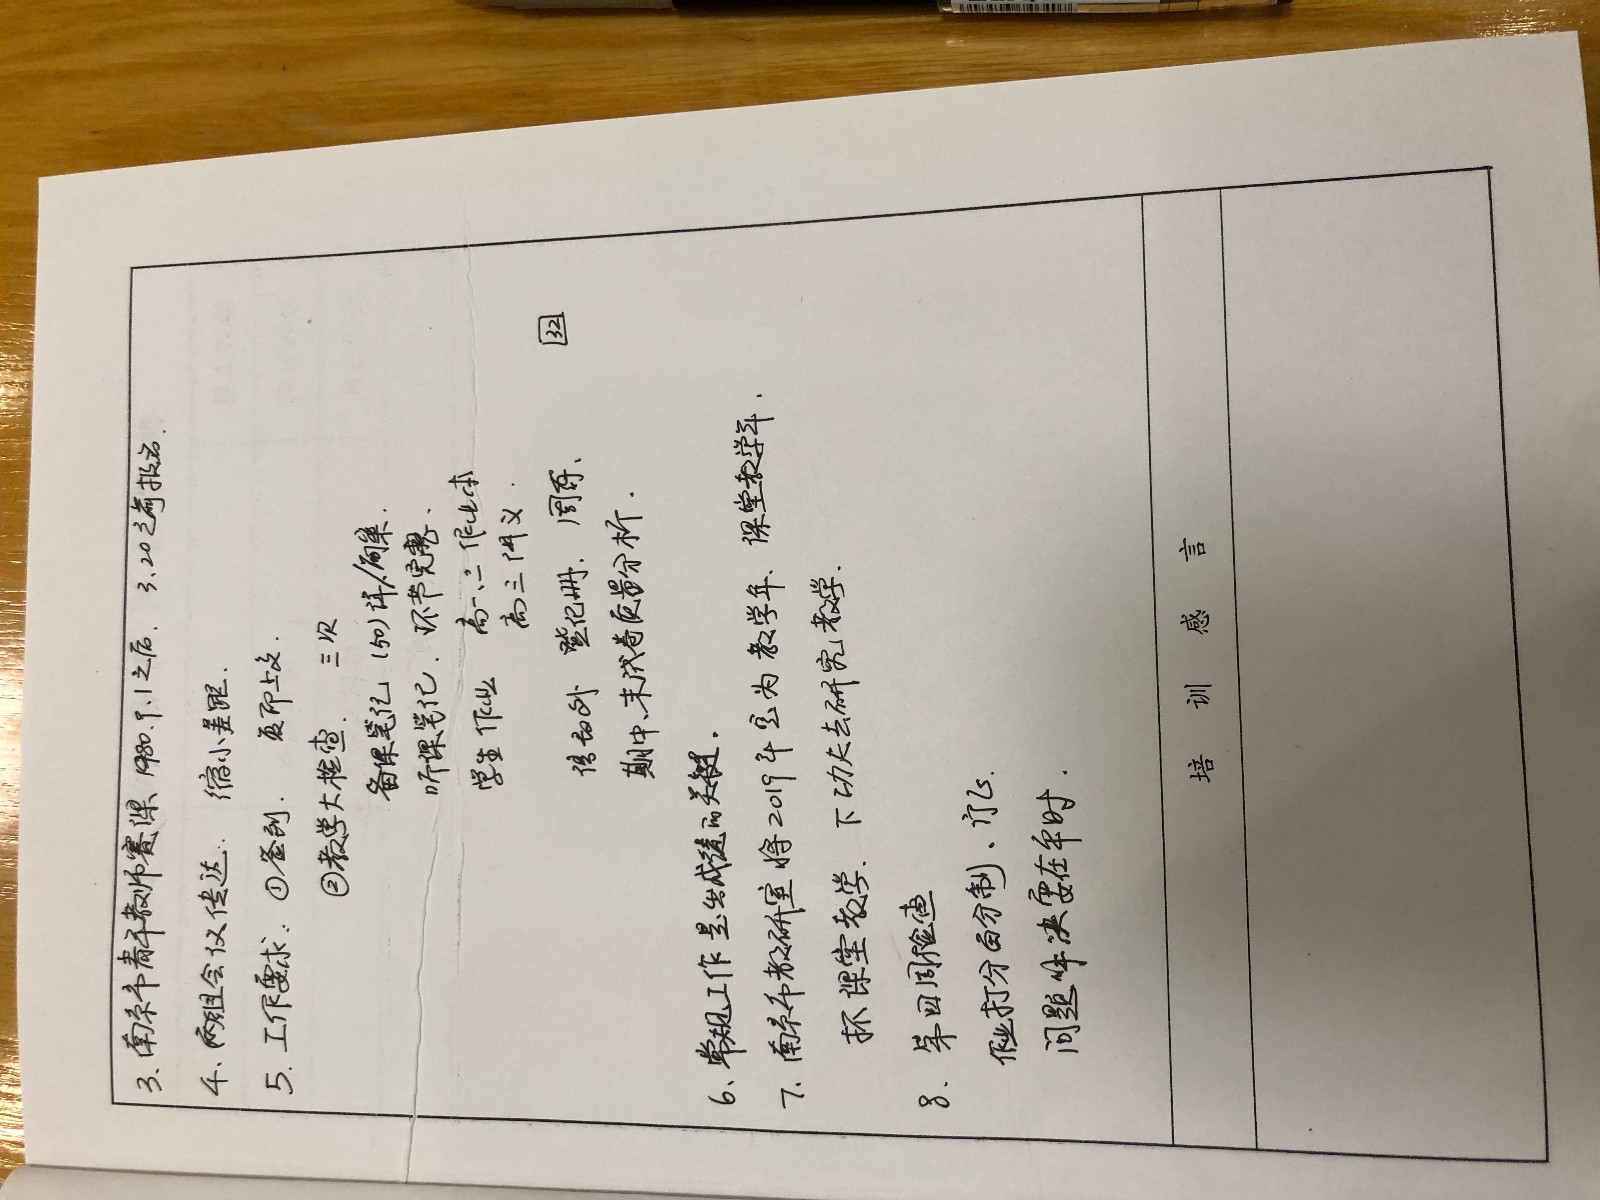 3、南京市青年教师赛课、1980.9.1之后. 3.20之前报名.
4、两组会议传达. 缩小差距.
5、工作要求. ①签到. 复印上交.
②教学大检查. 三次
备课笔记 (50)详/简案.
听课笔记. 环节完整.
学生作业 高一、二作业本
高三讲义.
培优 登记册. 周练. 32
期中、末试卷质量分析.
6、常规工作是出成绩的关键.
7、南京市教研室将2019年定为教学年. 课堂教学年.
抓课堂教学. 下功夫去研究教学.
8、第四周检查
作业打分百分制、订正.
问题解决要在平时.
培 训 感 言